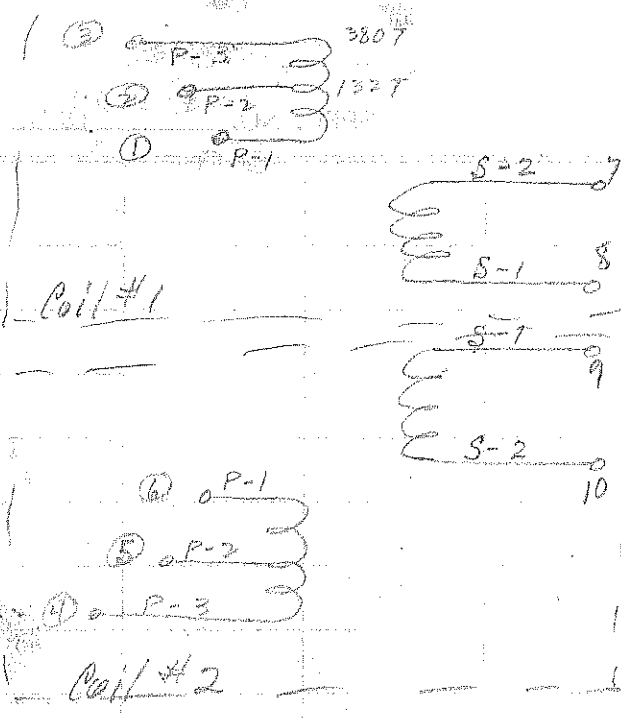 ③ P-3 380T
② P-2 132T
① P-1
S-2 7
S-1 8
Coil #1
S-1 9
S-2 10
⑥ P-1
⑤ P-2
④ P-3
Coil #2